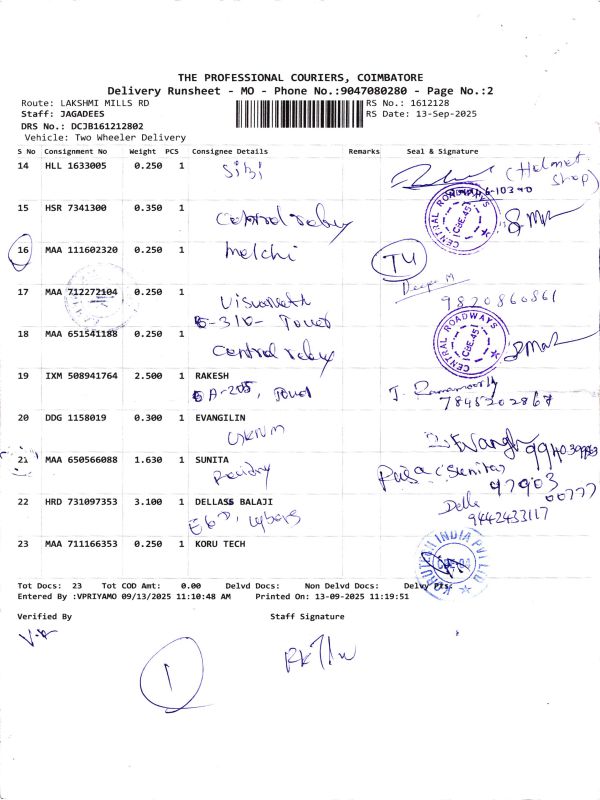 THE PROFESSIONAL COURIERS, COIMBATORE
Delivery Runsheet - MO - Phone No.:9047080280 - Page No.:2
Route: LAKSHMI MILLS RD
RS No.: 1612128
Staff: JAGADEES
RS Date: 13-Sep-2025
DRS No.: DCJB161212802
Vehicle: Two Wheeler Delivery
S No Consignment No Weight PCS Consignee Details Remarks Seal & Signature
14 HLL 1633005 0.250 1 Sibi (Helmet Shop)
15 HSR 7341300 0.350 1 Central relay CENTRAL ROADWAYS CBE.45
16 MAA 111602320 0.250 1 Melchi T4
17 MAA 712272104 0.250 1 Deepa M
9820860861
18 MAA 651541188 0.250 1 Central relay CENTRAL ROADWAYS CBE.45
19 IXM 508941764 2.500 1 RAKESH
7845202867
20 DDG 1158019 0.300 1 EVANGILIN
21 MAA 650566088 1.630 1 SUNITA (Sunita)
97903 00777
22 HRD 731097353 3.100 1 DELLASS BALAJI Della
9442433117
23 MAA 711166353 0.250 1 KORU TECH
Tot Docs: 23 Tot COD Amt: 0.00 Delvd Docs: Non Delvd Docs: Delvy Pts:
Entered By :VPRIYAMO 09/13/2025 11:10:48 AM Printed On: 13-09-2025 11:19:51
Verified By Staff Signature
1